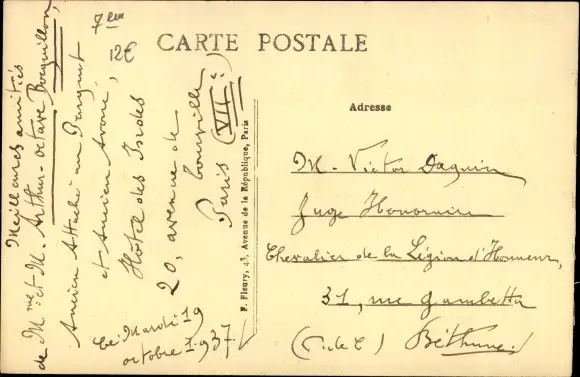 7 len
12€
CARTE POSTALE
Meilleures amitiés
de Mme et M. Arthur-Octave Bocquillon,
Ancien Attaché au Parquet
et Ancien Avoué,
Hôtel des Indes
20, avenue de
Tourville
Paris (VII:)
Ce Mardi 19
octobre 1937.
F. Fleury, 43, Avenue de la République, Paris
Adresse
M. Victor Daquin,
Juge Honoraire
Chevalier de la Légion d'Honneur,
31, rue Gambetta
(P. de C) Béthune.